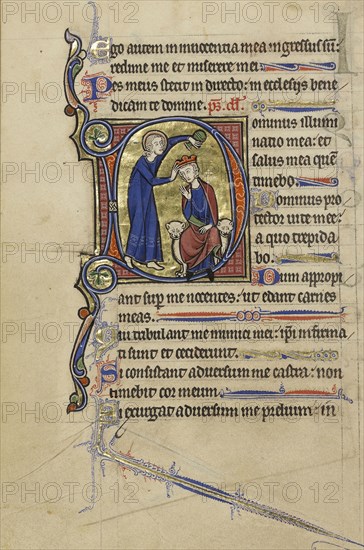 Ego autem in innocentia mea ingressus sū:
redime me et miserere mei.
Pes meus stetit in directo: in ecclesijs bene
dicam te domine. ps. dd.
Dominus illumi
natio mea: et
salus mea quē
timebo.
Dominus pro
tector vite mee:
a quo trepida
bo.
Dum appropi
ant sup me nocentes: ut edant carnes
meas.
Qui tribulant me inimici mei: ipi infirma
ti sunt et ceciderunt.
Si consistant adversum me castra: non
timebit cor meum.
Si exurgat adversum me prelium: in
PHOTO12